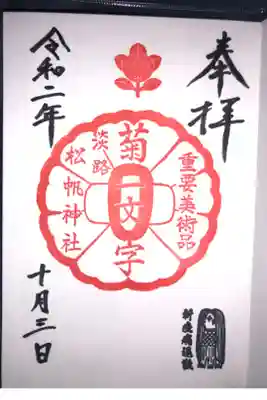 奉拝
重要美術品
菊一文字
淡路
松帆神社
令和二年
十月三日
新疫病退散